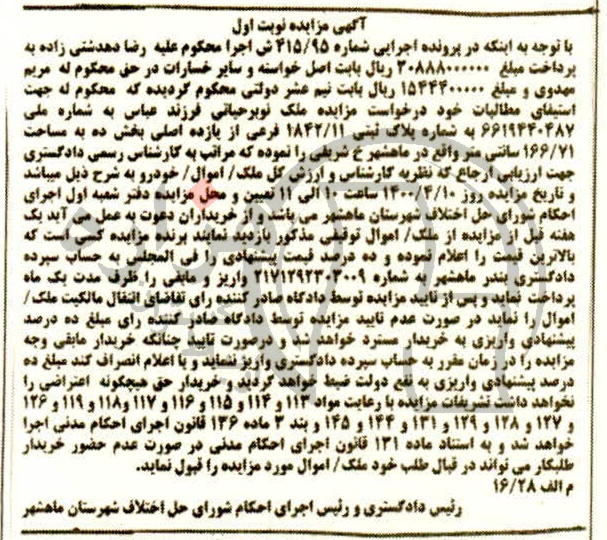 آگهی مزایده نوبت اول
با توجه به اینکه در پرونده اجرایی شماره ۴۱۵/۹۵ ش اجرا محکوم علیه رضا دهدشتی زاده به
پرداخت مبلغ ۳۰۸۸۸۰۰۰۰۰۰ ریال بابت اصل خواسته و سایر خسارات در حق محکوم له مریم
مهدوی و مبلغ ۱۵۴۴۴۰۰۰۰۰ ریال بابت نیم عشر دولتی محکوم گردیده که محکوم له جهت
استیفای مطالبات خود درخواست مزایده ملک نوبرحیانی فرزند عباس به شماره ملی
۶۶۱۹۴۴۰۴۸۷ به شماره پلاک ثبتی ۱۸۴۲/۱۱ فرعی از یازده اصلی بخش ده به مساحت
۱۶۶/۷۱ سانتی متر واقع در ماهشهر خ شریفی را نموده که مراتب به کارشناس رسمی دادگستری
جهت ارزیابی ارجاع که نظریه کارشناس و ارزش کل ملک/ اموال/ خودرو به شرح ذیل میباشد
و تاریخ مزایده روز ۱۴۰۰/۴/۱۰ ساعت ۱۰ الی ۱۱ تعیین و محل مزایده دفتر شعبه اول اجرای
احکام شورای حل اختلاف شهرستان ماهشهر می باشد و از خریداران دعوت به عمل می آید یک
هفته قبل از مزایده از ملک/ اموال توقیفی مذکور بازدید نمایند برنده مزایده کسی است که
بالاترین قیمت را اعلام نموده و ده درصد قیمت پیشنهادی را فی المجلس به حساب سپرده
دادگستری بندر ماهشهر به شماره ۲۱۷۱۲۹۲۳۰۳۰۰۹ واریز و مابقی را ظرف مدت یک ماه
پرداخت نماید و پس از تایید مزایده توسط دادگاه صادر کننده رای تقاضای انتقال مالکیت ملک/
اموال را نماید در صورت عدم تایید مزایده توسط دادگاه صادر کننده رای مبلغ ده درصد
پیشنهادی واریزی به خریدار مسترد خواهد شد و درصورت تایید چنانکه خریدار مابقی وجه
مزایده را در زمان مقرر به حساب سپرده دادگستری واریز ننماید و یا اعلام انصراف کند مبلغ ده
درصد پیشنهادی واریزی به نفع دولت ضبط خواهد گردید و خریدار حق هیچگونه اعتراضی را
نخواهد داشت تشریفات مزایده با رعایت مواد ۱۱۳ و ۱۱۴ و ۱۱۵ و ۱۱۶ و ۱۱۷ و۱۱۸ و ۱۱۹ و ۱۲۶
و ۱۲۷ و ۱۲۸ و ۱۲۹ و ۱۳۱ و ۱۴۴ و ۱۴۵ و بند ۳ ماده ۱۳۶ قانون اجرای احکام مدنی اجرا
خواهد شد و به استناد ماده ۱۳۱ قانون اجرای احکام مدنی در صورت عدم حضور خریدار
طلبکار می تواند در قبال طلب خود ملک/ اموال مورد مزایده را قبول نماید.
م الف ۱۶/۲۸
رئیس دادگستری و رئیس اجرای احکام شورای حل اختلاف شهرستان ماهشهر